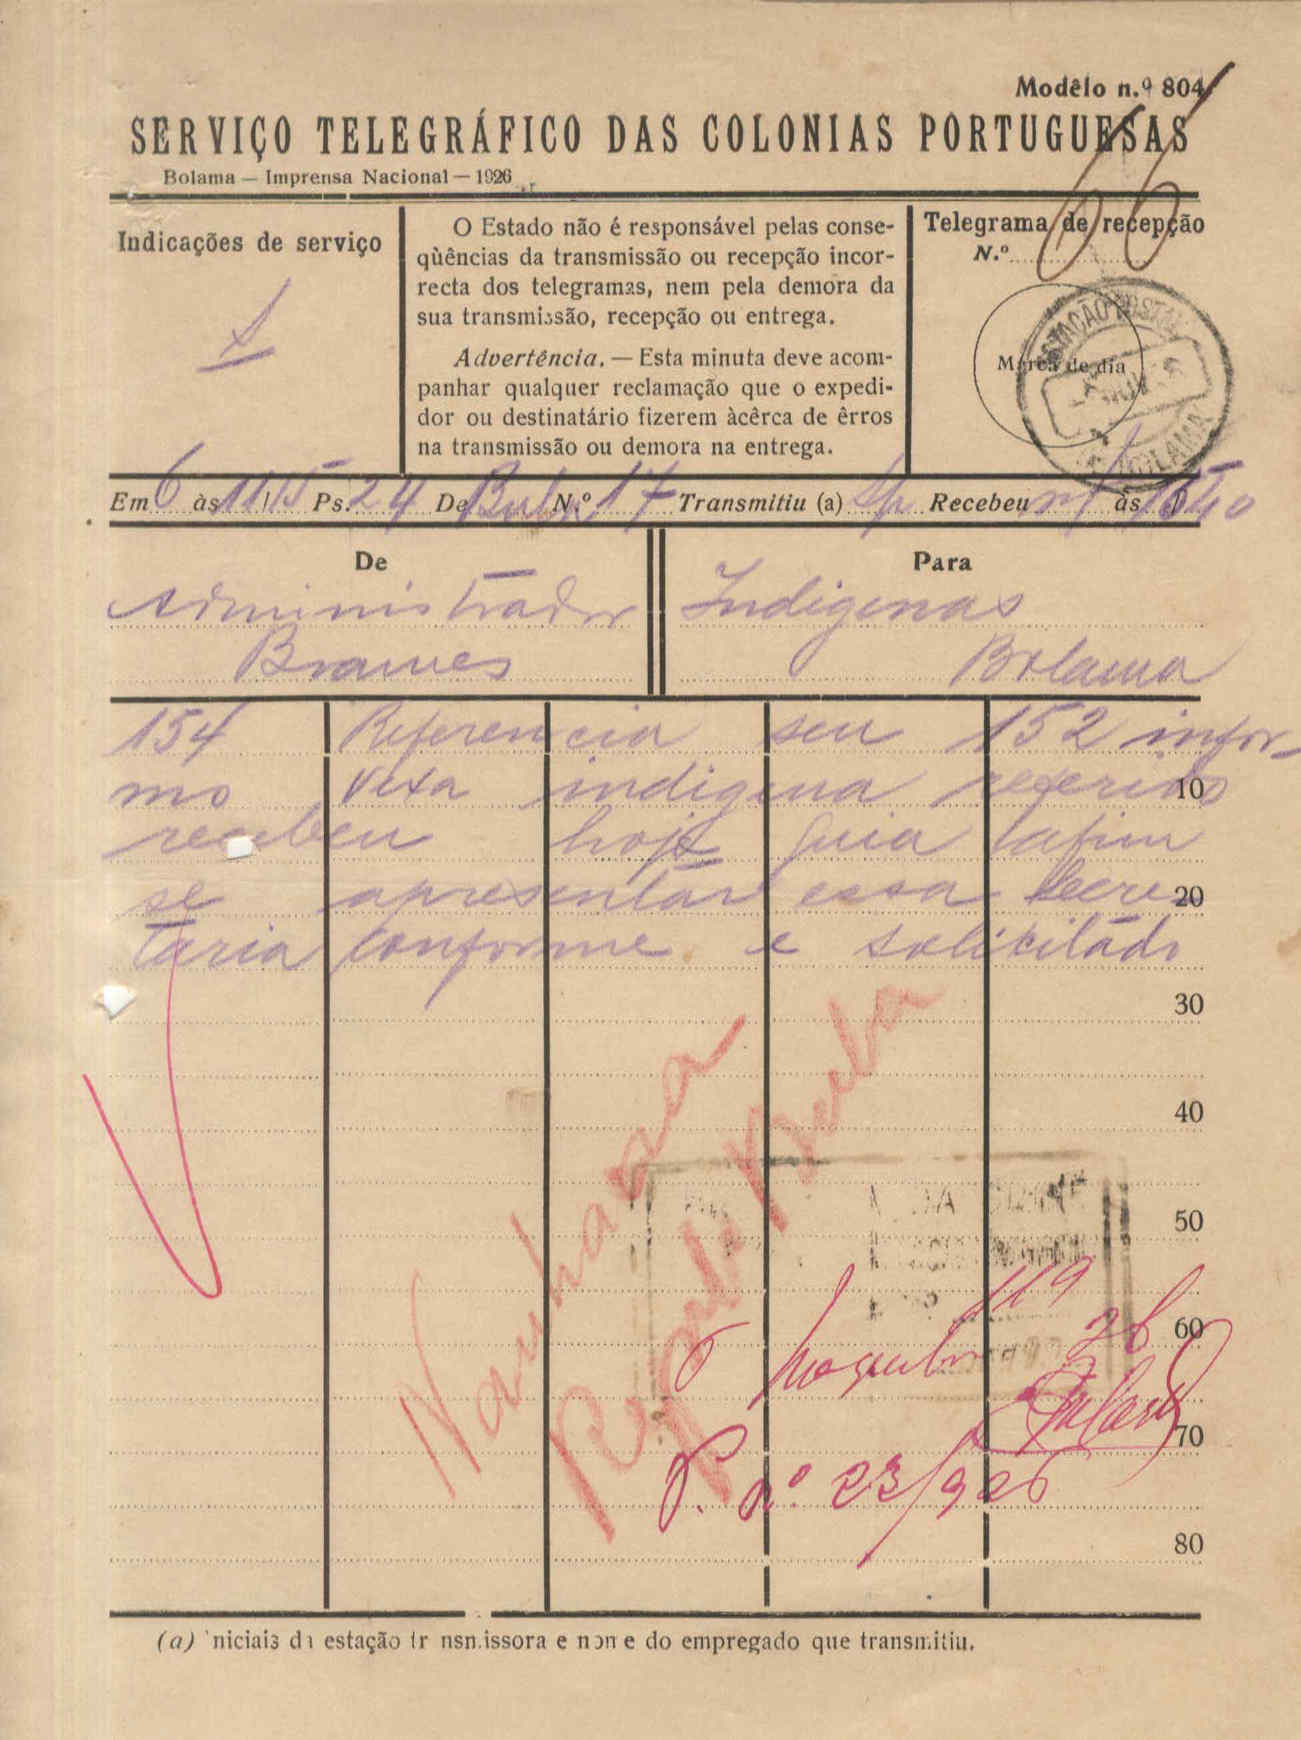 Modêlo n.º 804
SERVIÇO TELEGRÁFICO DAS COLONIAS PORTUGUESAS
Bolama — Imprensa Nacional — 1926
Indicações de serviço
O Estado não é responsável pelas conse-
qùências da transmissão ou recepção incor-
recta dos telegramas, nem pela demora da
sua transmissão, recepção ou entrega.
Advertência. — Esta minuta deve acom-
panhar qualquer reclamação que o expedi-
dor ou destinatário fizerem àcêrca de êrros
na transmissão ou demora na entrega.
Telegrama de recepção
N.º 66
Marca do dia
ESTAÇÃO POSTAL
BOLAMA
Em 6 às 1115 Ps. 24 De Bula N.º 17 Transmitiu (a) Sp Recebeu às 1540
De
Administrador
Brames
Para
Indigenas
Bolama
154 Referencia seu 152 infor-
mo Vexa indigena referido
10
recebeu hoje guia afim
se apresentar essa Secre
20
taria conforme e solicitado
30
40
50
60
70
80
Nanhaca
Bula
119
26
P. nº. 23/926
(a) niciais da estação tr nsmissora e nome do empregado que transmitiu.